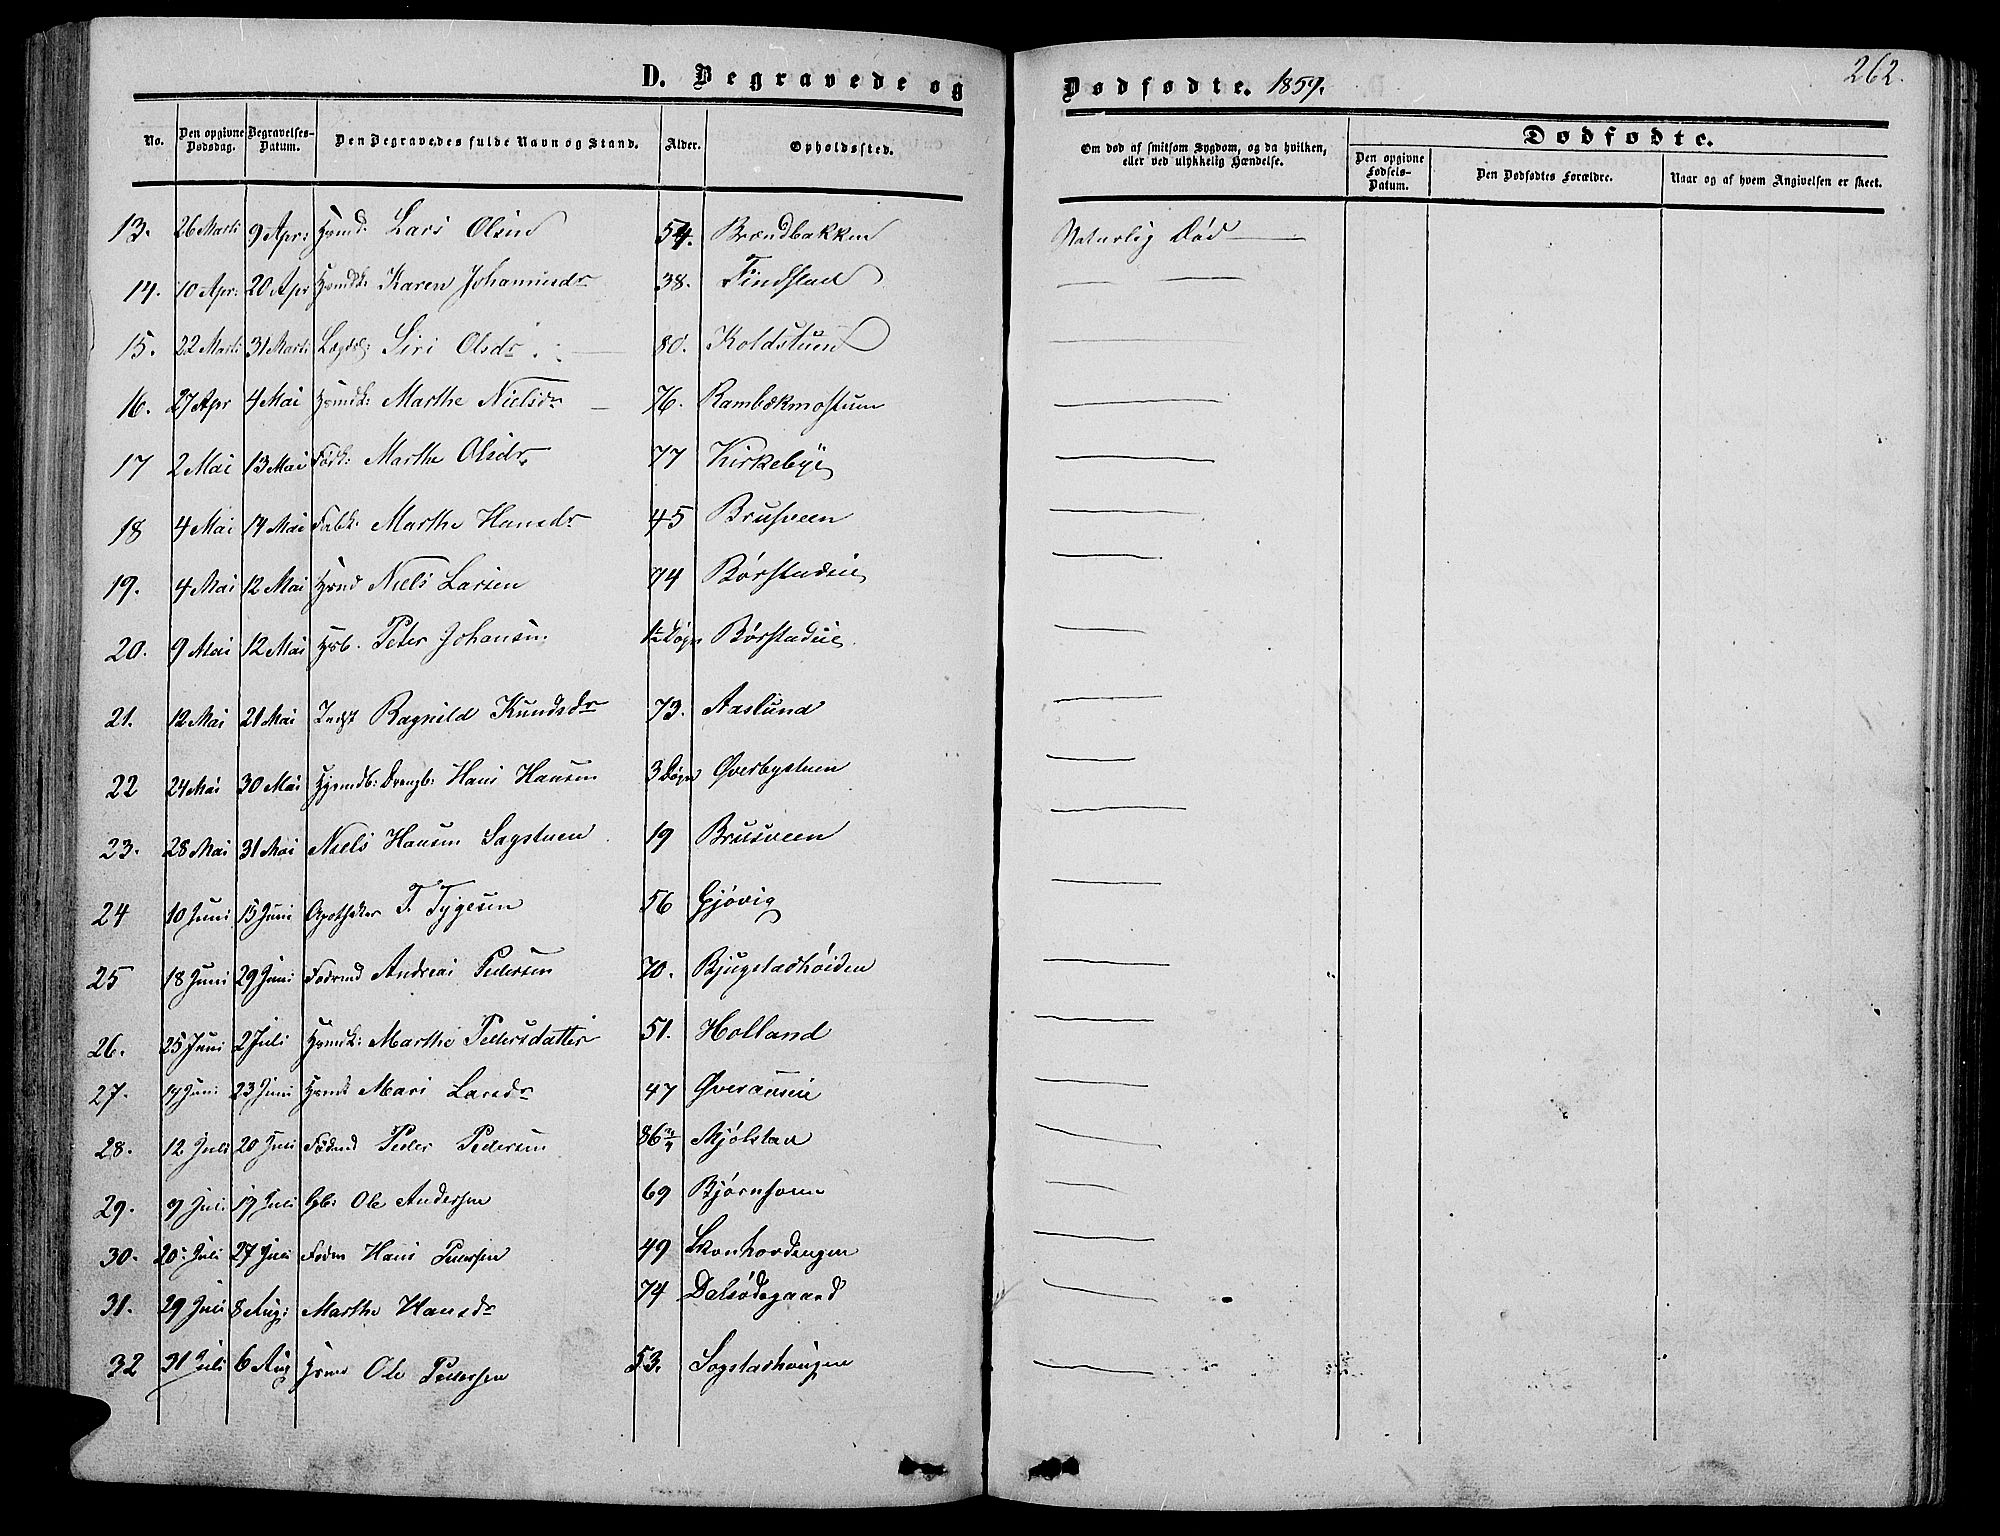 D. Begravede og Dødfødte. 1859. 262.
No. Den opgivne Dødsdag. Begravelses-Datum. Den Begravedes fulde Navn og Stand. Alder. Opholdssted. Om død af smitsom Sygdom, og da hvilken, eller ved ulykkelig Hændelse. Dødfødte. Den opgivne Fødsels-Datum. Den Dødfødtes Forældre. Naar og af hvem Angivelsen er skeet.
13. 26 Marti 9 Apr: Hsmd. Lars Olsen 54. Brændbakken Naturlig Død
14. 10 Apr: 20 Apr Hsmdsk: Karen Johannesdr 38. Findstad
15. 22 Marti 31 Marti Lægdslg Siri Olsdr 80. Koldstuen
16. 27 Apr 4 Mai Hsmdk: Marthe Nielsdr 76. Rambækmostuen
17 2 Mai 13 Mai Födk: Marthe Olsdr 77 Kirkebye
18 4 Mai 14 Mai Marthe Hansdr 45 Brusveen
19. 4 Mai 12 Mai Hsmd Niels Larsen 74 Børstadeie
20. 9 Mai 12 Mai Hsb. Peter Johansen 1½ Døgn Børstadeie
21. 12 Mai 21 Mai Indst Ragnild Knudsdr 73. Aaslund
22 24 Mai 30 Mai Hjsmdb: Drengb: Hans Hansen 3 Døgn Øverbystuen
23. 28 Mai 31 Mai Niels Hansen Sagstuen 19 Brusveen
24 10 Juni 15 Juni Apotheker T. Tygesen 56 Gjøvig
25 18 Juni 29 Juni Födmd Andreas Pedersen 70. Bjugstadhøiden
26. 25 Juni 2 Juli Hsmdk: Marthe Pedersdatter 51. Holland
27. 14 Juni 23 Juni Hsmdk Mari Larsdr 47 Øveraaseie
28. 12 Juli 20 Juli Födmd Peder Pedersen 86 Mjølstad
29. 9 Juli 19 Juli Gb: Ole Andersen 69 Bjørnsveen
30. 20 Juli 27 Juli Födm Hans Pedersen 49 Skonhovdengen
31. 29 Juli 8 Aug: Marthe Hansdr 74 Dalsødegaard
32 31 Juli 6 Aug Hsmd Ole Pedersen 53. Sogstadhaugen